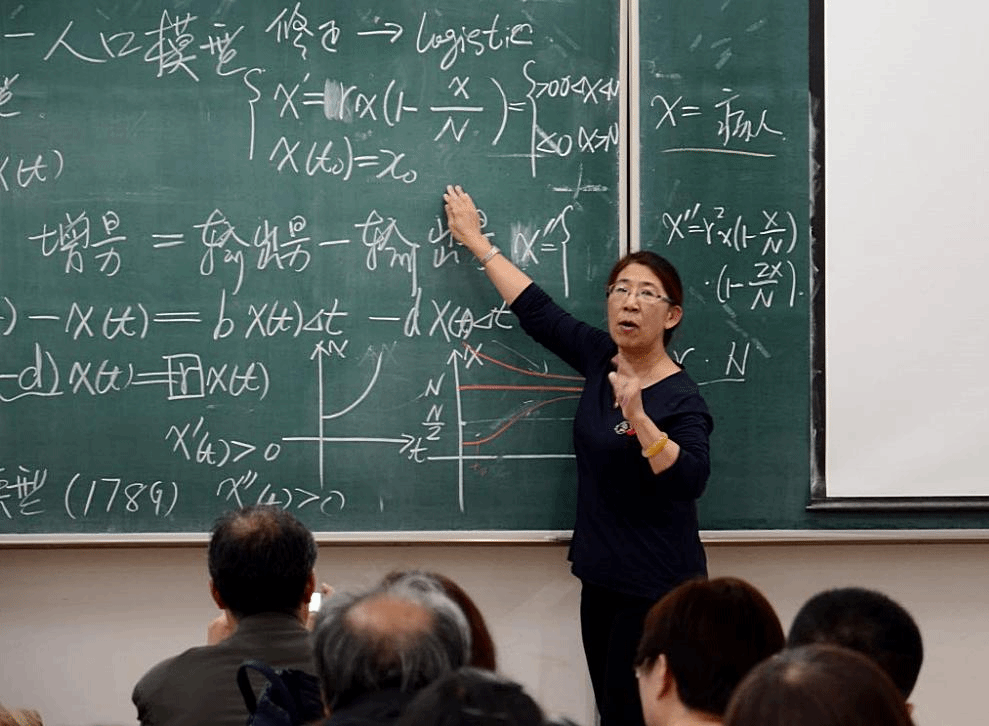 一人口模型 修正 → Logistic
x' = rx(1 - x/N) = { >0 0<x<N
x(t₀) = x₀ <0 x>N
x(t)
增量 = 输入量 - 输出量
x'' = {
) - x(t) = b x(t)Δt - d x(t)Δt
-d) x(t) = r x(t)
x'(t) > 0
模型 (1789) x''(t) > 0
x
t
x
N
N/2
t₀
x = 病人
x'' = r²x(1 - x/N)
·(1 - 2x/N).
r · N